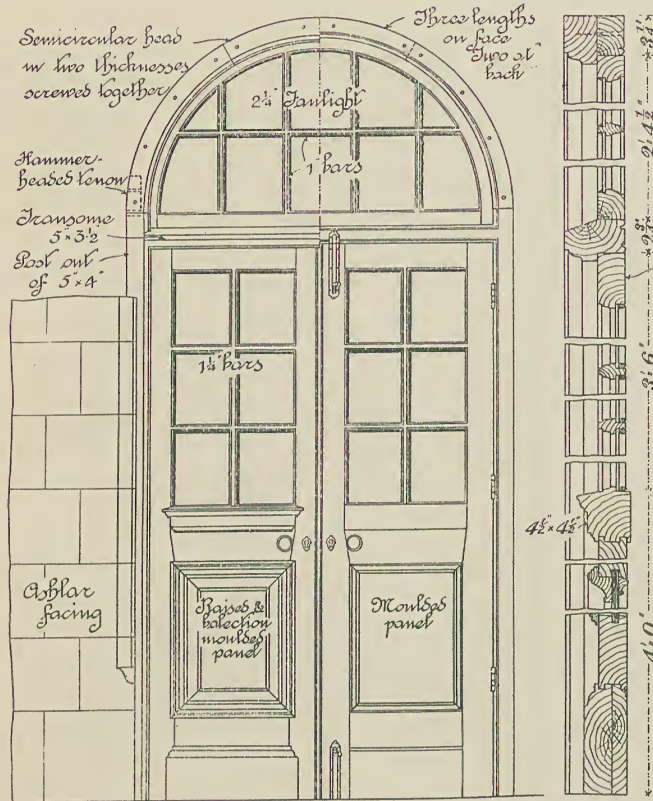 Semicircular head
in two thicknesses
screwed together
Three lengths
on face
Two at
back
2¼" Fanlight
1" bars
Hammer-
headed tenon
Transome
5" × 3½"
Post out
of 5" × 4"
1¼" bars
Ashlar
facing
Raised &
bolection
moulded
panel
Moulded
panel
2' 4½"
3' 6"
4½" × 4½"
4' 0"